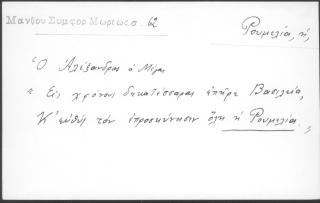 Μανθου Συμφορ Μωρεως σ. 62
Ρουμελία, ἡ
Ὁ Ἀλέξανδρος ὁ Μέγας
" Εἰς χρόνους δεκατέσσαρας ἐπῆρε Βασιλεία,
Κ' εὐθὺς τὸν ἐπροσκύνησεν ὅλη ἡ Ρουμελία.